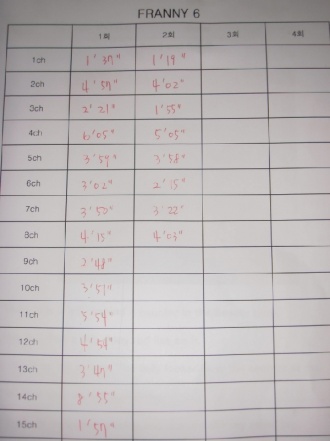 FRANNY 6
1회 2회 3회 4회
1ch 1'37" 1'19"
2ch 4'57" 4'02"
3ch 2'21" 1'55"
4ch 6'05" 5'05"
5ch 3'59" 3'58"
6ch 3'02" 2'15"
7ch 3'50" 3'22"
8ch 4'15" 4'03"
9ch 2'48"
10ch 3'57"
11ch 5'54"
12ch 4'54"
13ch 3'47"
14ch 8'35"
15ch 1'57"